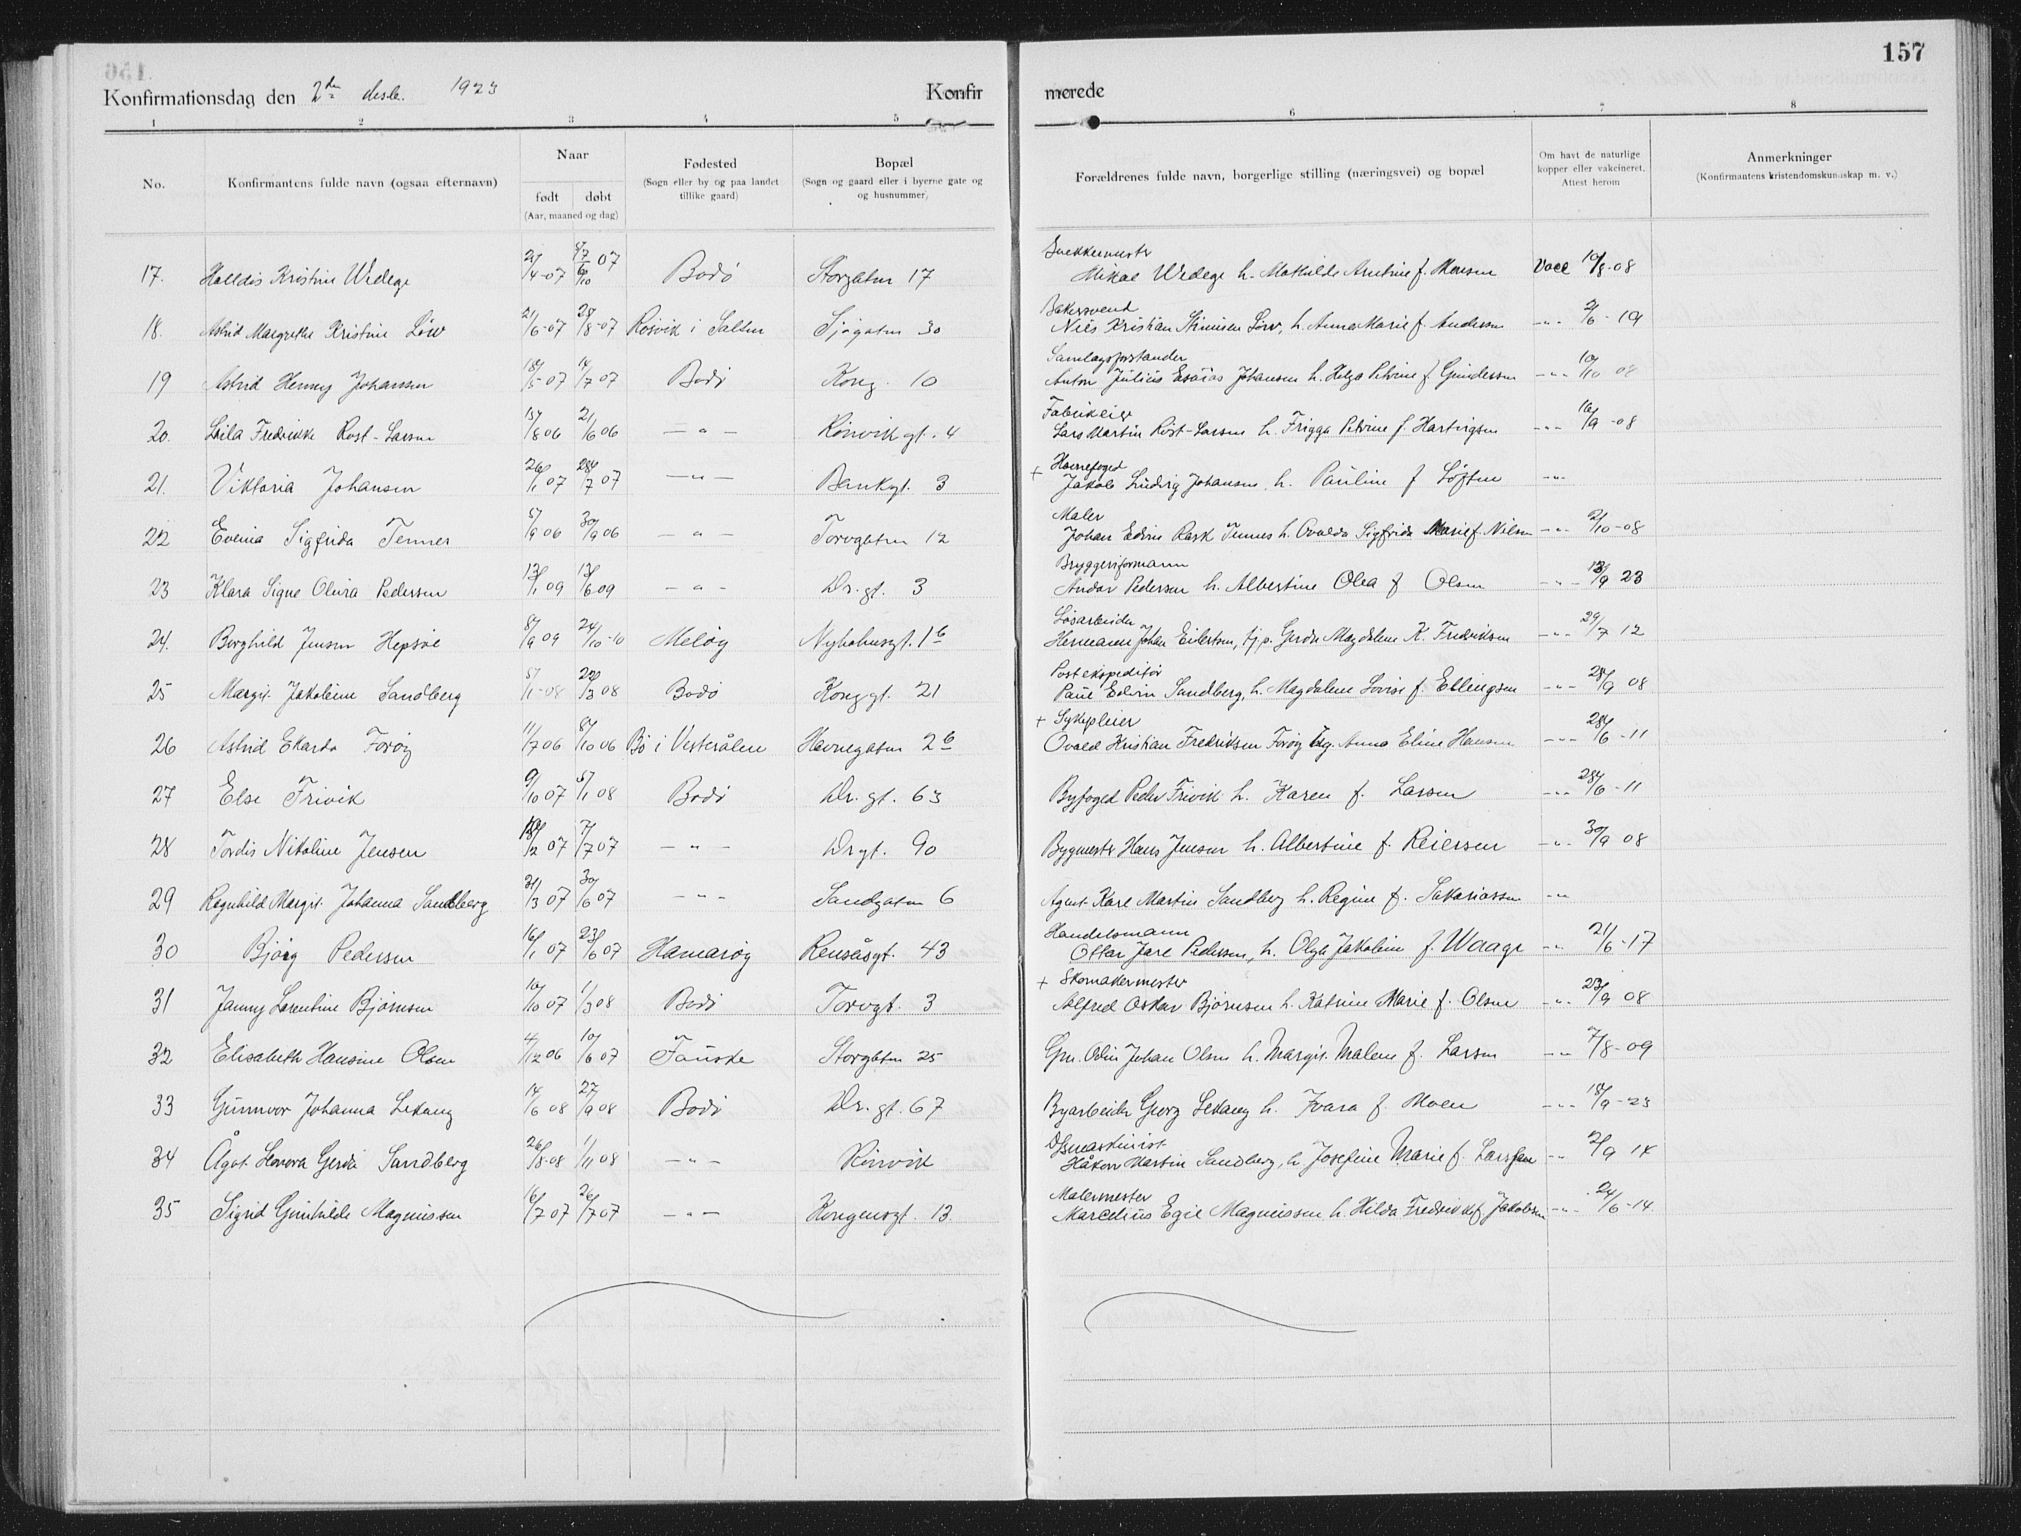 157
Konfirmationsdag den 2den desbr. 1923 Konfir merede
1 2 3 4 5 6 7 8
No. Konfirmantens fulde navn (ogsaa efternavn) Naar født døbt (Aar, maaned og dag) Fødested (Sogn eller by og paa landet tillike gaard) Bopæl (Sogn og gaard eller i byerne gate og og husnummer) Forældrenes fulde navn, borgerlige stilling (næringsvei) og bopæl Om havt de naturlige kopper eller vakcineret. Attest herom Anmerkninger (Konfirmantens kristendomskundskap m. v.)
Snekkermester
17. Halldis Kristine Wedege 2/4-07 Bodø Storgaten 17 Mikal Wedege h. Mathilde Arntine f. Monsen Vacc 10/8-08
Bakersvend
18. Astrid Margrethe Kristine Löw 21/6-07 28/8-07 Røsvik i Salten Sjøgaten 30 Nils Kristian Löw, h. Anna Marie f. Andersen -"- 2/6-19
Samlagsforstander
19 Astrid Henny Johansen 18/5-07 14/7 07 Bodø Kong. 10 Anton Julius Esaias Johansen h. Helga Petrine f. Gundersen -"- 10/10 08
Fabrikeier
20. Laila Fredrikke Röst-Larsen 15/8 06 2/6 06 -"- Rönvikgt. 4 Lars Martin Röst-Larsen h. Frigga Petrine f. Hartvigsen -"- 16/9-08
+ Havnefoged
21. Viktoria Johansen 26/1 07 28/7 07 -"- Bankgt. 3 Jakob Ludvig Johansen h. Pauline f Löften -"-
Maler
22 Evenia Sigfrida Tennes 5/9 06 30/9 06 -"- Torvgaten 12 Johan Edvin Rask Tennes h. Ovalda Sigfrida Marie f. Nilsen -"- 2/10-08
Bryggeriformann
23 Klara Signe Olivia Pedersen 13/1 09 13/6 09 -"- Dr. gt. 3 Andor Pedersen h. Albertine Olea f Olsen -"- 13/9 23
Løsarbeider
24. Borghild Jensen Hepsöe 8/9 09 24/10-10 Meløy Nyholmsgt. 1b Hermann Johan Eilertsen, Gerda Magdalene K. Fredriksen -"- 29/7 12
Postekspeditør
25 Margit Jakobine Sandberg 5/1-08 22/3 08 Bodø Konggt. 21 Paul Edvin Sandberg, h. Magdalene Lovise f. Ellingsen -"- 28/9 08
+ Sykepleier
26 Astrid Ekarda Forøy 11/7 06 8/10 06 Bø i Vesterålen Havnegaten 2b Ovald Kristian Fredriksen Forøy Anna Eline Hansen -"- 28/6-11
27 Else Trivik 9/10 07 5/1 08 Bodø Dr. gt. 63 Byfoged Peder Trivik h. Karen f. Larsen -"- 28/6-11
28 Tordis Nikoline Jensen 07 7/7 07 -"- Dr gt. 90 Bygmestr Hans Jensen h. Albertine f. Reiersen -"- 30/9 08
29 Ragnhild Margit Johanna Sandberg 31/3 07 30/6 07 -"- Sandgaten 6 Agent Karl Martin Sandberg h. Regine f. Sakariassen -"-
Handelsmann
30 Bjørg Pedersen 16/1 07 23/6 07 Hamarøy Rensåsgt. 43 Ottar Jarl Pedersen, h. Olga Jakobine f. Waage -"- 21/6-17
+ Skomakermester
31 Janny Larentine Bjørnsen 10/10 07 1/3 08 Bodø Torvgt. 3 Alfred Oskar Bjørnsen h. Katrine Marie f. Olsen -"- 23/9 08
32 Elisabeth Hansine Olsen 4/12 06 10/6 07 Fauske Storgaten 25 Gm. Odin Johan Olsen h. Margit Malene f. Larsen -"- 7/8-09
33 Gunnvor Johanna Lekang 14/6 08 27/9 08 Bodø Dr. gt. 67 Byarbeider Georg Lekang h. Ivara f. Moen -"- 18/9-23
Dsmaskinist
34 Ågot Honora Gerda Sandberg 26/8-08 1/11 08 -"- Rönvik Håkon Martin Sandberg, h. Josefine Marie f. Larssen -"- 2/9 14
Malermester
35 Sigrid Gunhilde Magnussen 16/7 07 26/7 07 -"- Kongensgt. 13. Marcelius Egil Magnussen h. Hilda Fredrikke f. Jakobsen -"- 24/6-14.